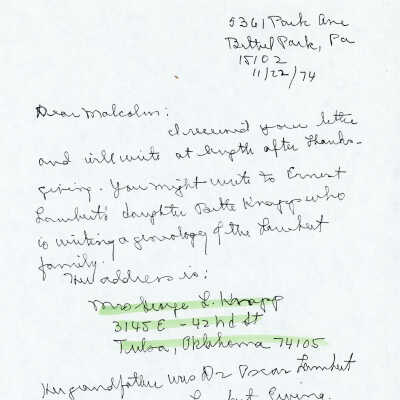 5361 Park Ave
Bethel Park, Pa
15102
11/22/74
Dear Malcolm:
I received your letter
and will write at length after Thanks-
giving. You might write to Ernest
Lambert's daughter Bette Knapp who
is writing a geneology of the Lambert
family.
Her address is:
Mrs George L. Knapp
3145 E - 42nd St
Tulsa, Oklahoma 74105
Her grandfather was Dr Oscar Lambert